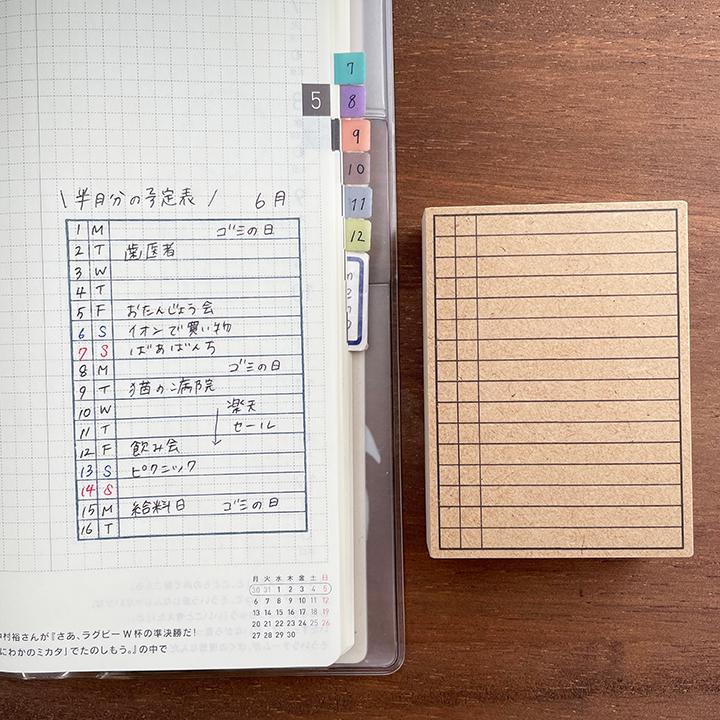 7
5
8
9
10
11
12
\ 半月分の予定表 /　6月
1 M ゴミの日
2 T 歯医者
3 W
4 T
5 F おたんじょう会
6 S イオンで買い物
7 S ばあばんち
8 M ゴミの日
9 T 猫の病院
10 W 楽天
11 T セール
12 F 飲み会
13 S ピクニック
14 S
15 M 給料日 ゴミの日
16 T
月 火 水 木 金 土 日
30 31 1 2 3 4 5
6 7 8 9 10 11 12
13 14 15 16 17 18 19
20 21 22 23 24 25 26
27 28 29 30
村裕さんが『さあ、ラグビーW杯の準決勝だ!
にわかのミカタ」でたのしもう。』の中で